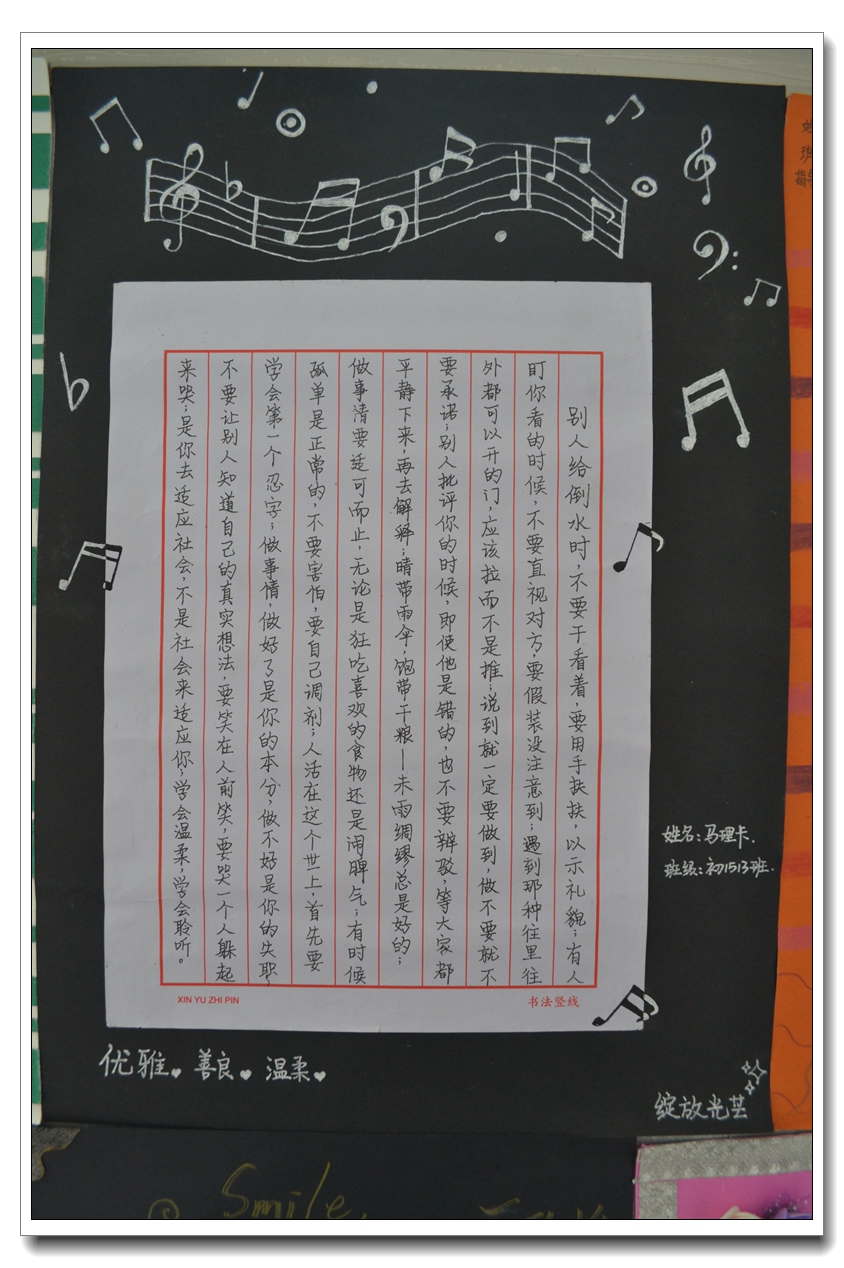 别人给倒水时,不要干看着,要用手扶扶,以示礼貌;有人
盯你看的时候,不要直视对方,要假装没注意到;遇到那种往里往
外都可以开的门,应该拉而不是推;说到就一定要做到,做不要就不
要承诺;别人批评你的时候,即使他是错的,也不要辩驳,等大家都
平静下来,再去解释;晴带雨伞,饱带干粮——未雨绸缪总是好的;
做事情要适可而止,无论是狂吃喜欢的食物还是闹脾气;有时候
孤单是正常的,不要害怕,要自己调剂;人活在这个世上,首先要
学会第一个忍字;做事情,做好了是你的本分,做不好是你的失职,
不要让别人知道自己的真实想法,要笑在人前笑,要哭一个人躲起
来哭;是你去适应社会,不是社会来适应你;学会温柔,学会聆听。
XIN YU ZHI PIN
书法竖线
姓名:马理卡.
班级:初1513班.
优雅 善良 温柔
绽放光芒
Smile.